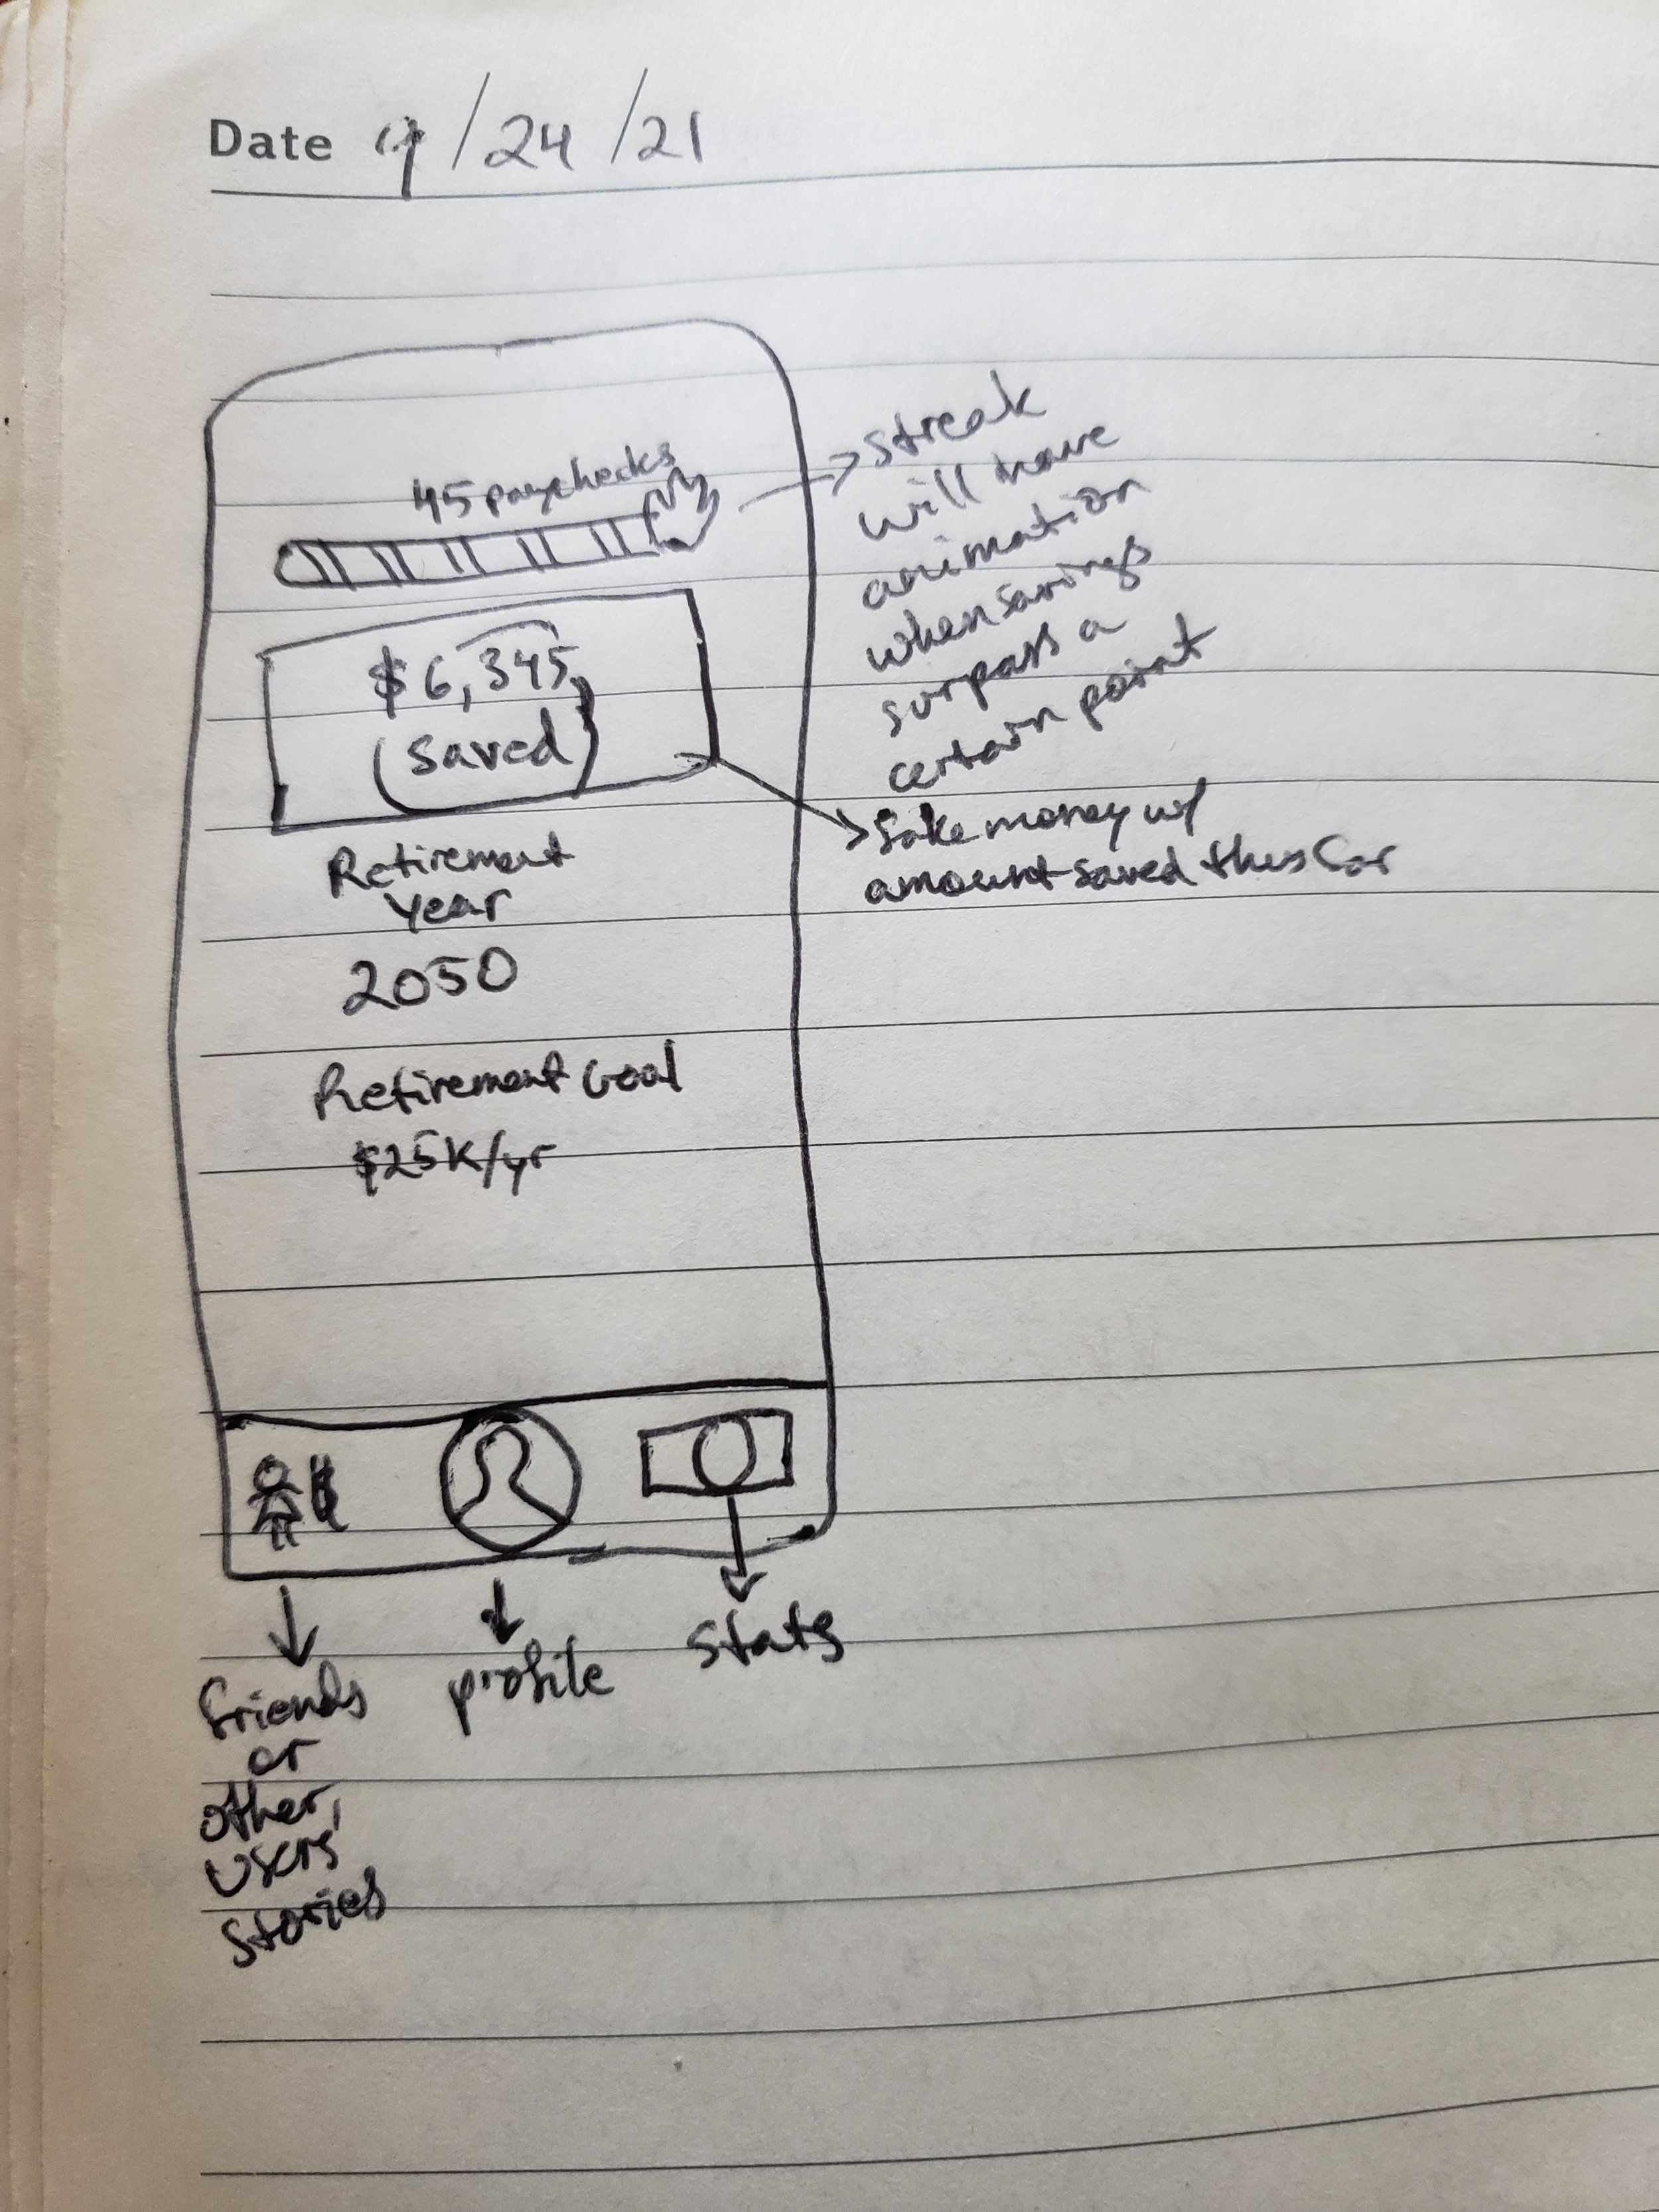 Date 9/24/21
45 paychecks
$6,345
(saved)
Retirement
year
2050
Retirement Goal
$25K/yr
→ streak
will have
animation
when savings
surpass a
certain point
→ fake money w/
amount saved thus far
friends
or
other
users'
stories
profile
stats